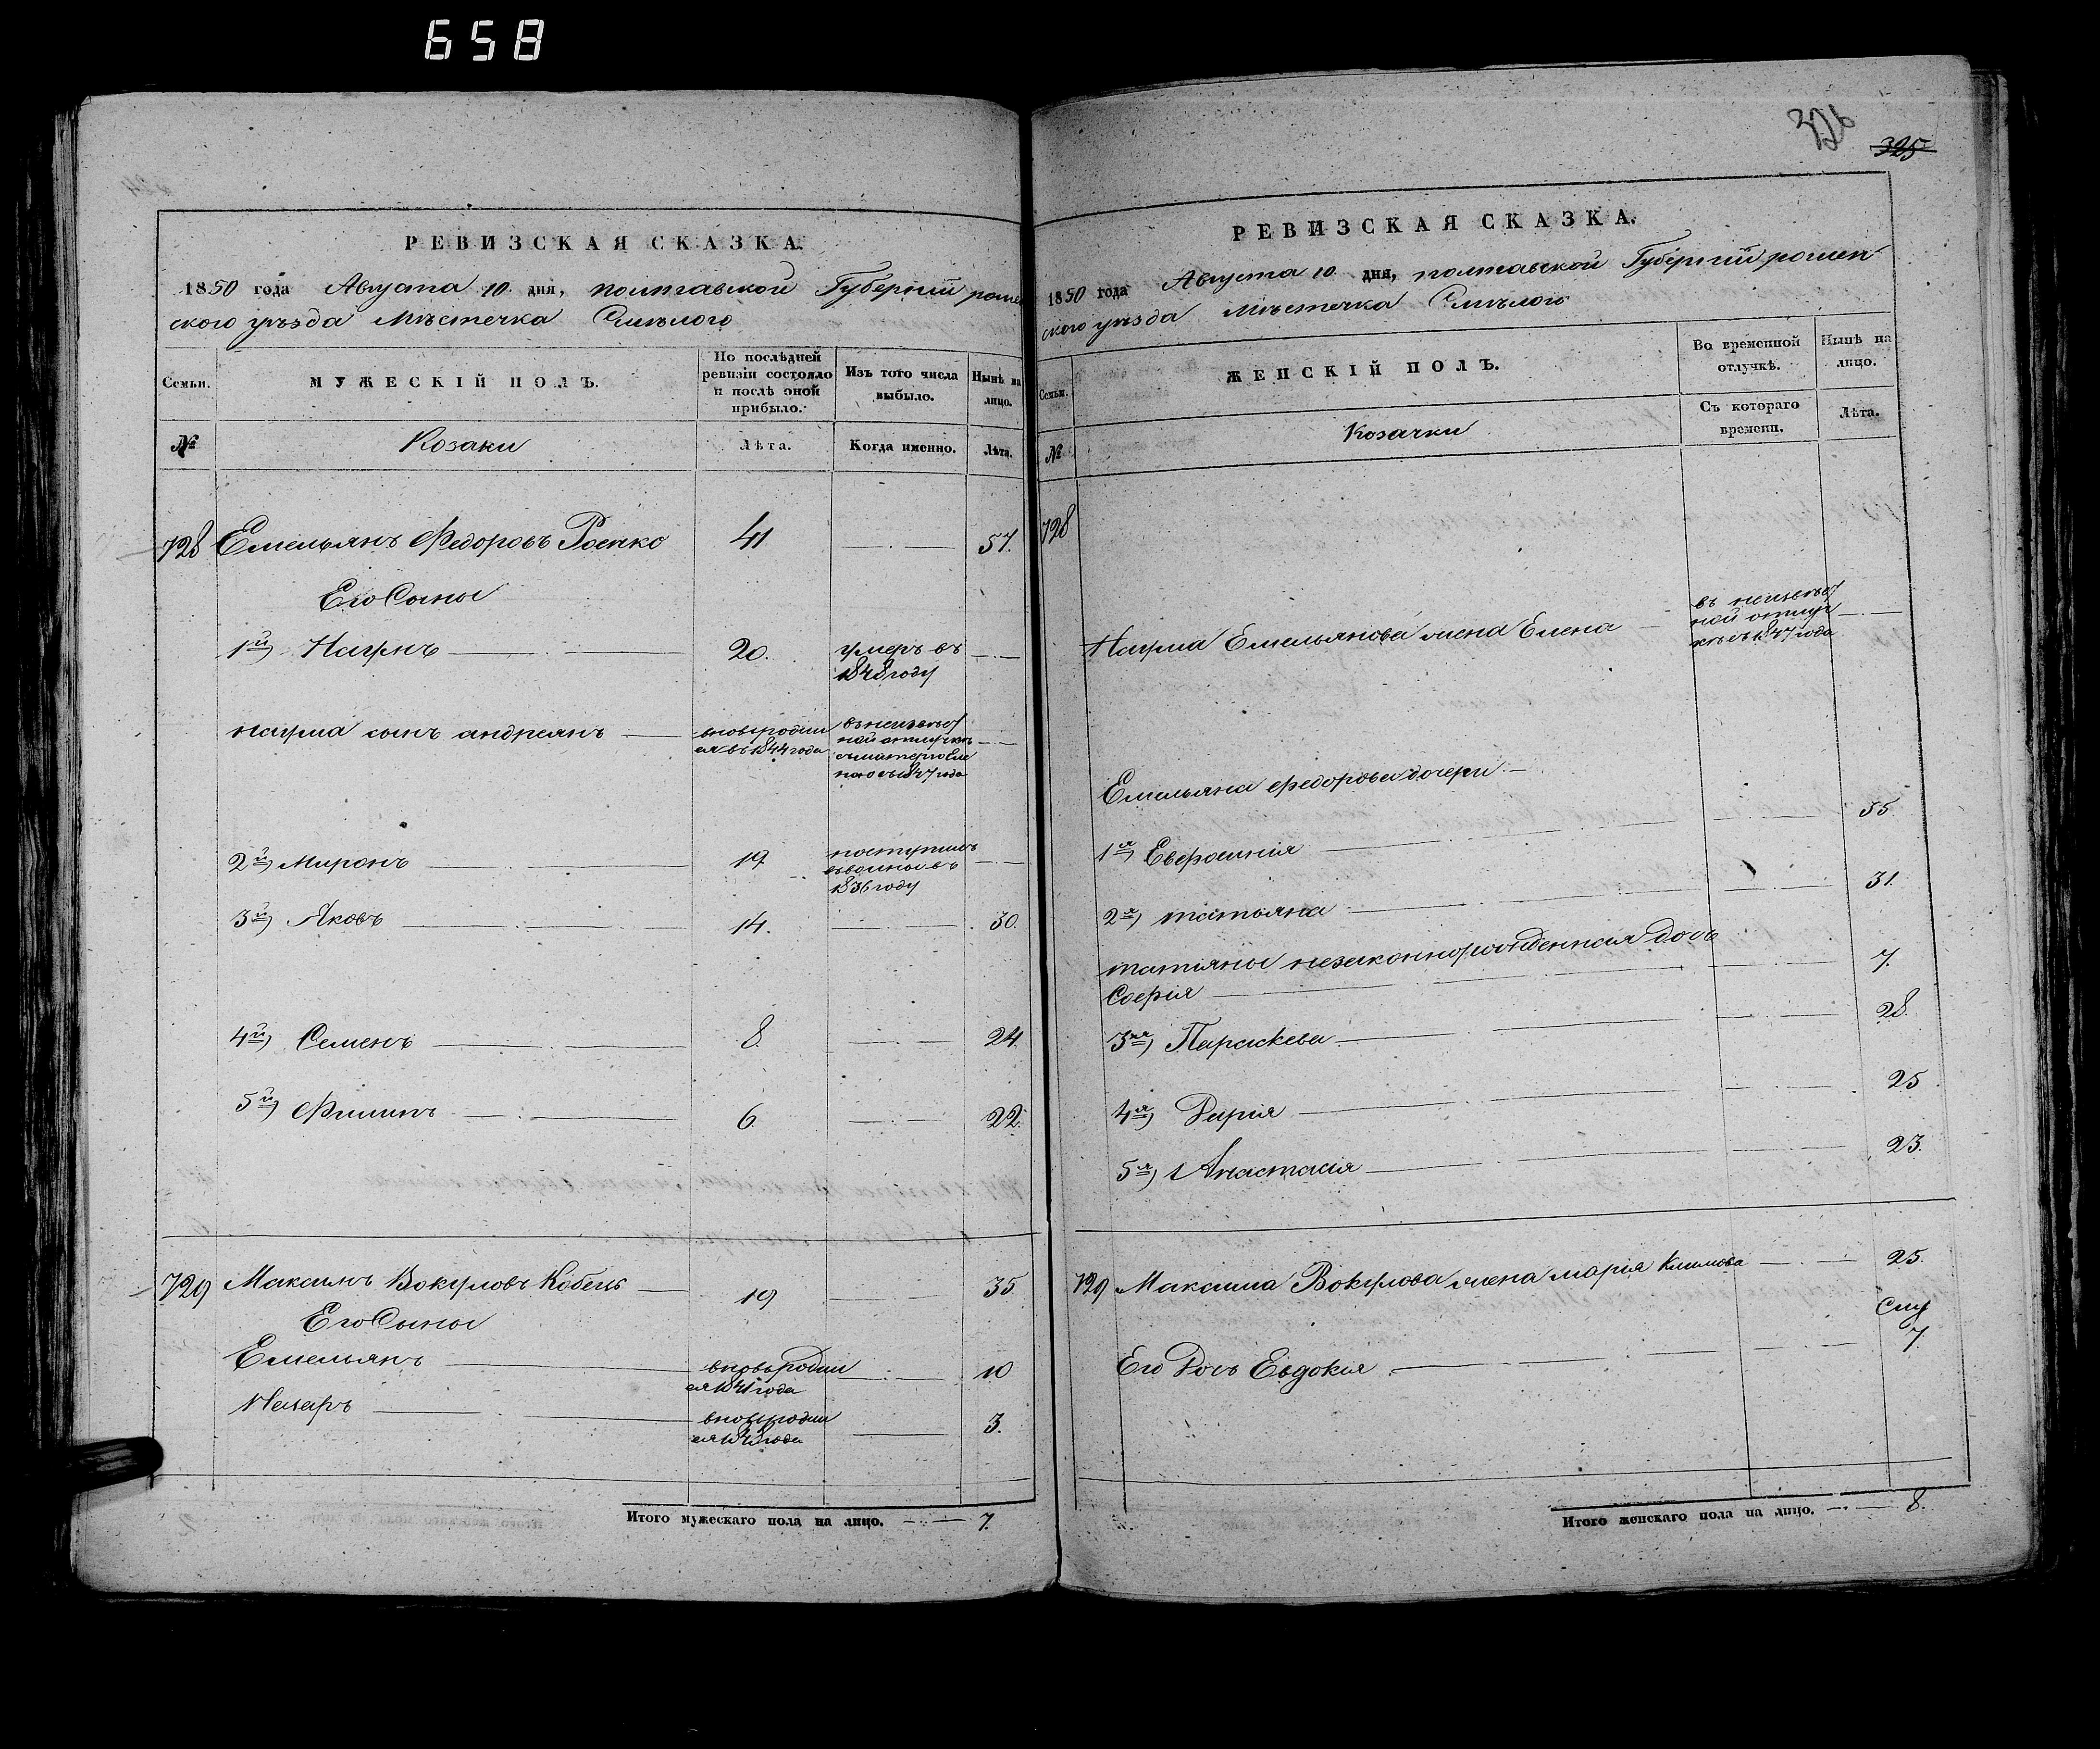 658
РЕВИЗСКАЯ СКАЗКА.
1850 года Августа 10 дня, полтавской Губерніи ромен
ского уѣзда Мѣстечка Смѣлого
Семьи.
МУЖЕСКІЙ ПОЛЪ.
По послѣдней ревизіи состояло и послѣ оной прибыло.
Изъ того числа выбыло.
Нынѣ на лицо.
№
Козаки
Лѣта.
Когда именно.
Лѣта.
728 Емельянъ Федоровъ Роенко 41 57.
Его Сыны
1й Наумъ 20. умеръ въ
1848 году
наума сынъ андреянъ вновь родил
ся въ 1844 года
въ неизвѣст
ной отлучкѣ
съ матерью Еле
ною съ 1847 года
2й Миронъ 19 поступилъ
въ военные въ
1836 году
3й Яковъ 14. 30.
4й Семенъ 8. 24.
5й Филипъ 6. 22.
729 Максимъ Вокуловъ Кобецъ 19 35
Его Сыны
Емельянъ вновь родил
ся 1841 года 10
Назаръ вновь родил
ся года 3.
Итого мужескаго пола на лицо. 7.
326
325
РЕВИЗСКАЯ СКАЗКА.
1850 года Августа 10 дня, полтавской Губерніи ромен
ского уѣзда мѣстечка Смѣлого
Семьи.
ЖЕНСКІЙ ПОЛЪ.
Во временной отлучкѣ.
Нынѣ на лицо.
№
Козачки
Съ котораго времени.
Лѣта.
728
Наума Емельянова жена Елена въ неизвѣст
ной отлуч
кѣ съ 1847 года
Емельяна Федорова дочери
1я Евфросинія 35
2я татьяна 31.
татіяны незаконнорожденная дочь
Софія 7.
3я Параскева 28.
4я Дарія 25
5я Анастасія 23.
729 Максима Вокулова жена марія Климова 25.
Его Дочь Евдокія 7.
Итого женскаго пола на лицо. 8.